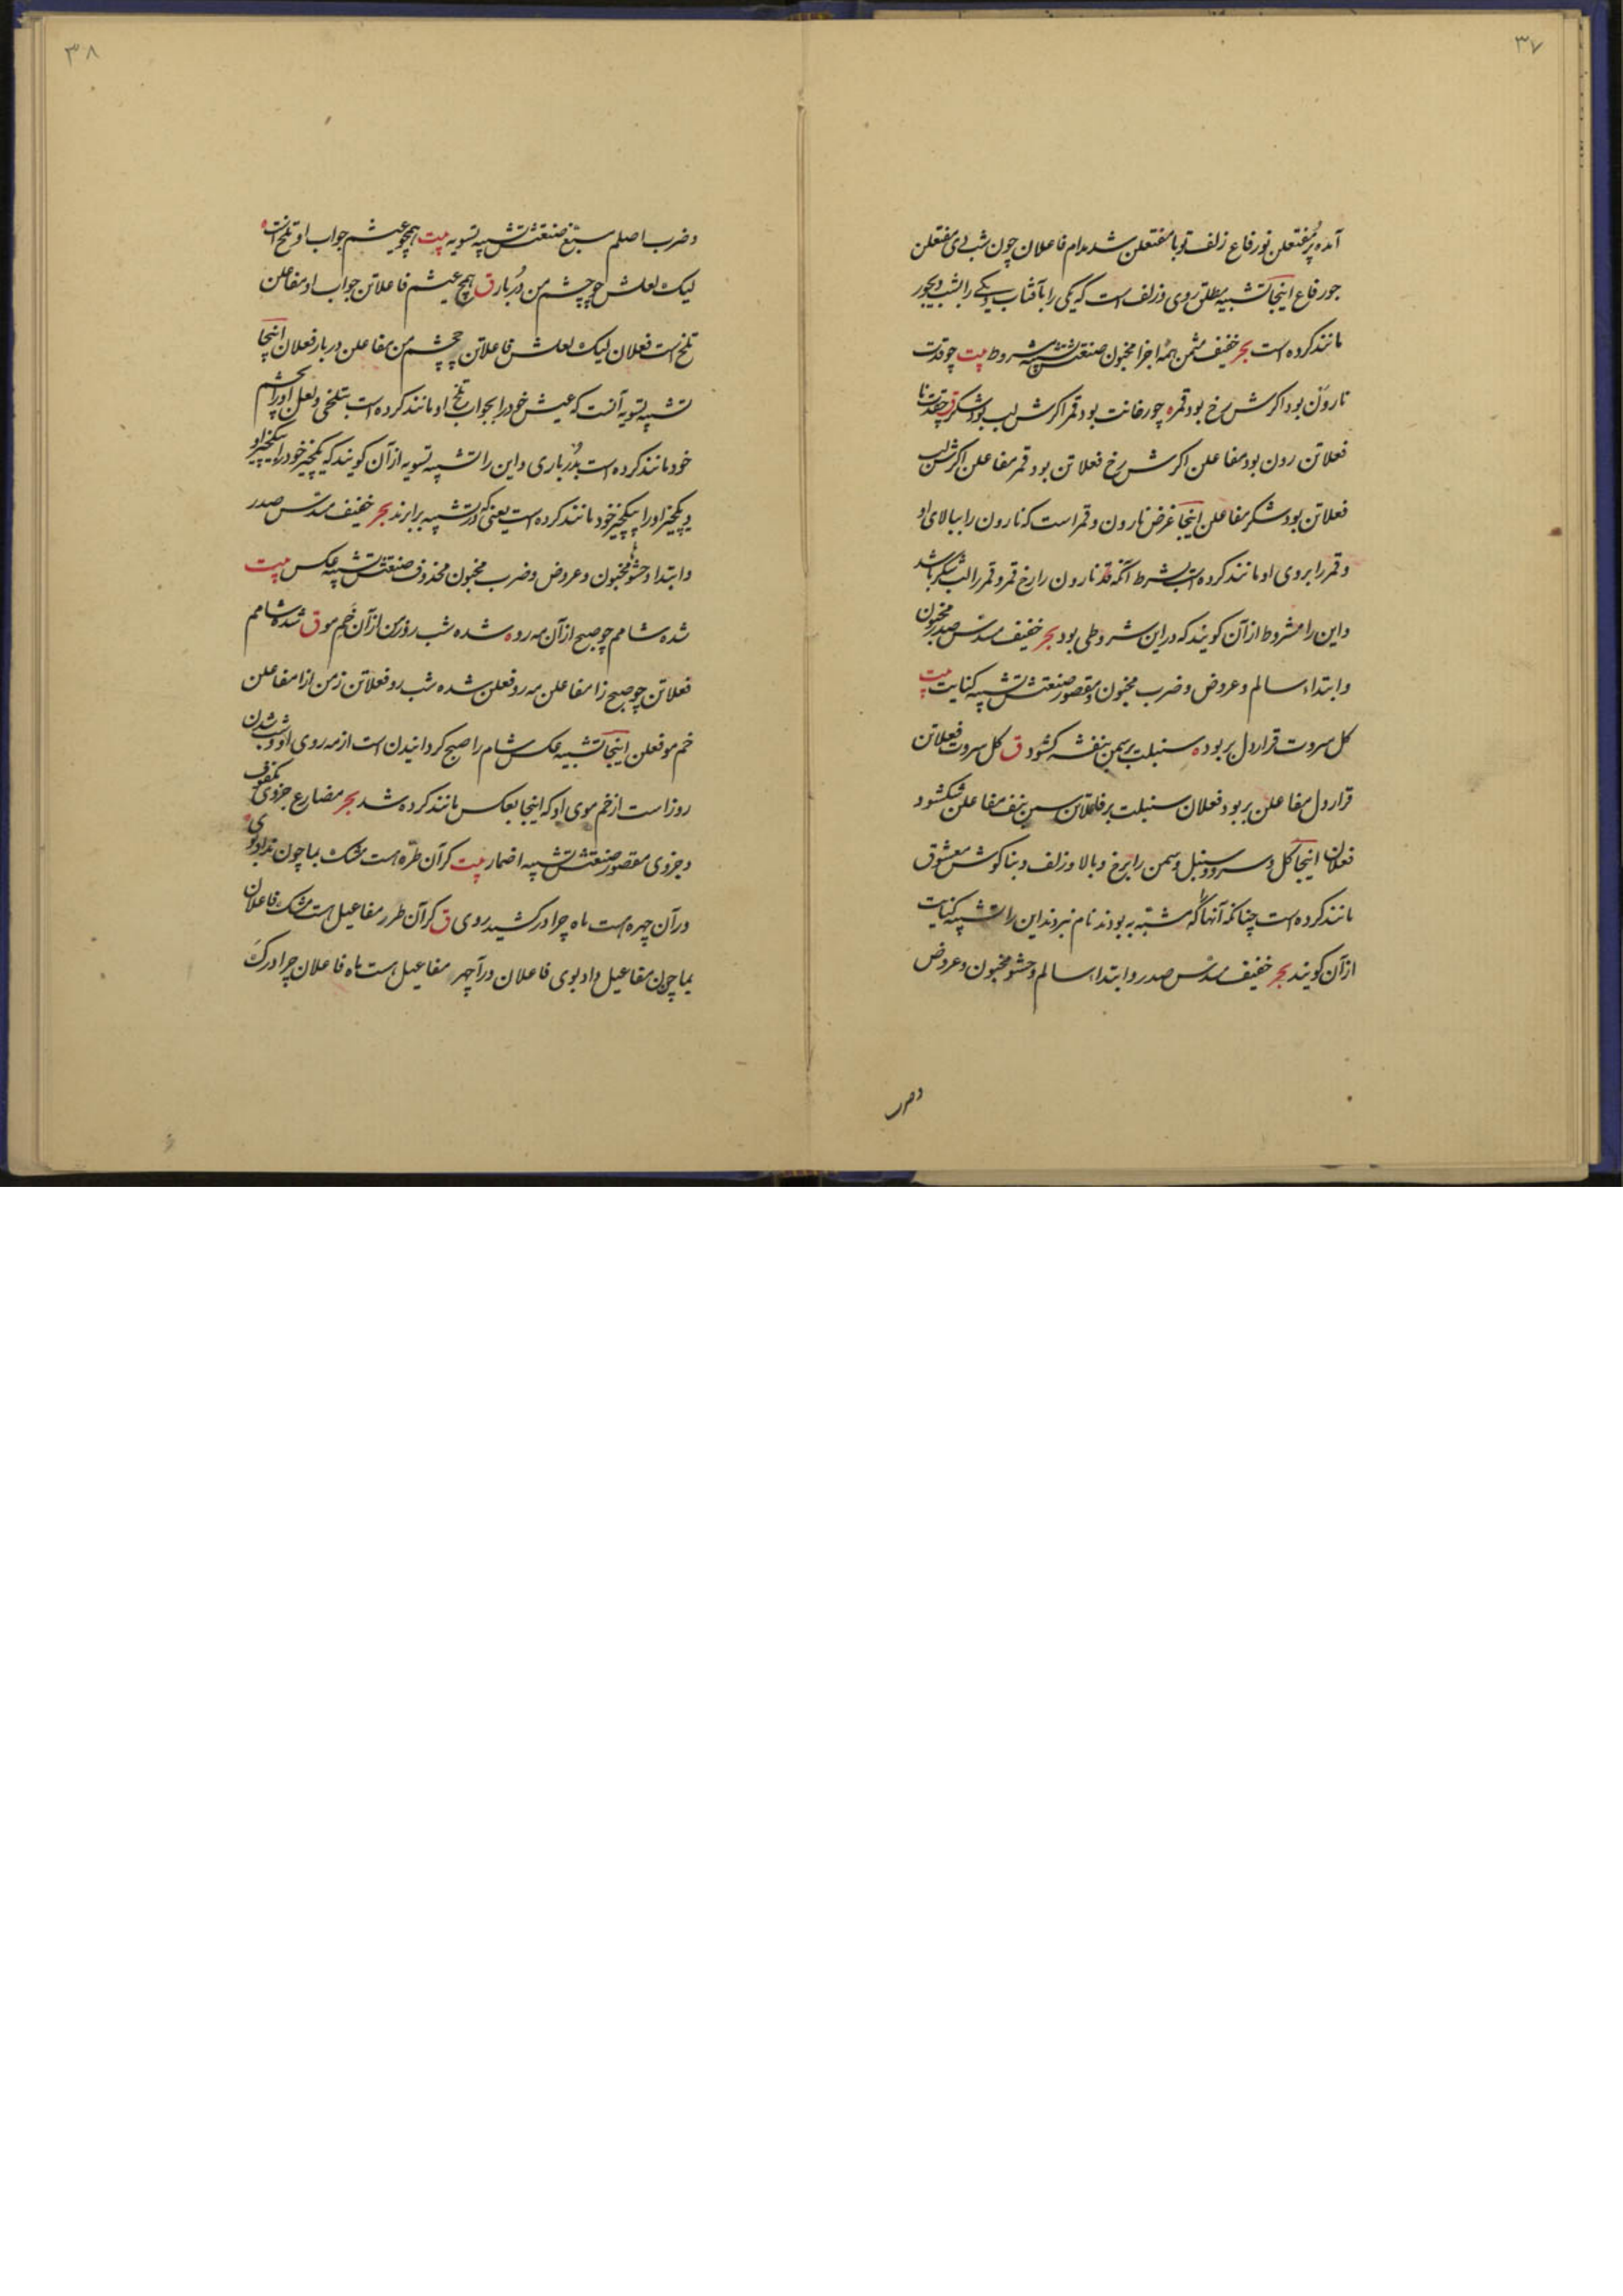 ۳۷
آمده پر مفتعلن نور فاع زلف تو با مفتعلن شد مدام فاعلان چون شب دی مفتعلن
جور فاع اینجا تشبیه مطلق روی و زلف است که یکی را بآفتاب و یکی را بشب دیجور
مانند کرده است بحر خفیف مثمن همه اجزا مخبون صنعتش تشبیه مشروط بیت چو قدت
نارون بود اکرش رخ بود قمر ه چو رخانت بود قمر اکرش لب بود شکر ق چقدت نا
فعلاتن رون بود مفاعلن اکرش رخ فعلاتن بود قمر مفاعلن اکرش لب
فعلاتن بود شکر مفاعلن اینجا غرض نارون و قمر است که نارون را ببالای او
و قمر را بروی او مانند کرده است بشرط آنکه قد نارون را رخ قمر و قمر را لب شکر باشد
و این را مشروط از آن کویند که در این شروطی بود بحر خفیف مسدس صدر مخبون
و ابتداء سالم و عروض و ضرب مخبون و مقصور صنعتش تشبیه کنایت بیت
کل سروت قرار دل بربود ه سنبلت بر سمن بنفشه کشود ق کل سروت فعلاتن
قرار دل مفاعلن بربود فعلان سنبلت بر فاعلاتن سمن بنف مفاعلن شکشود
فعلان اینجا کل و سرو و سنبل و سمن را برخ و بالا و زلف و بناکوش معشوق
مانند کرده است چنانکه آنها که مشبه به بودند نام نبردند این را تشبیه کنایت
از آن کویند بحر خفیف مسدس صدر و ابتدا سالم و حشو مخبون و عروض
وضرب
۳۸
و ضرب اصلم مسبغ صنعتش تشبیه تسویه بیت همچو عیشم جواب او تلخ است ه
لیک لعلش چو چشم من دربار ق همچ عیشم فاعلاتن جواب او مفاعلن
تلخ است فعلان لیک لعلش فاعلاتن چچشم من مفاعلن دربار فعلان اینجا
تشبیه تسویه آنست که عیش خود را بجواب تلخ او مانند کرده است بتلخی و لعل او را بچشم
خود مانند کرده است بدرباری و این را تشبیه تسویه از آن کویند که یکچیز خود را بیکچیز او
و یکچیز او را بیکچیز خود مانند کرده است یعنی که در تشبیه برابرند بحر خفیف مسدس صدر
و ابتدا و حشوها مخبون و عروض و ضرب مخبون محذوف صنعتش تشبیه عکس بیت
شده شامم چو صبح از آن مه رو ه شده شب روز من از آن خم مو ق شده شامم
فعلاتن چو صبح زا مفاعلن مه رو فعلن شده شب رو فعلاتن زمن ازا مفاعلن
خم مو فعلن اینجا تشبیه عکس شام را صبح کردانیدن است از مه روی او و شب شدن
روز است از خم موی او که اینجا بعکس مانند کرده شد بحر مضارع جزوی مکفوف
و جزوی مقصور صنعتش تشبیه اضمار بیت کر آن طره هست مشک بما چون نداد بوی ه
در آن چهره هست ماه چرا در کشید روی ق کر آن طرر مفاعیل هست مشک فاعلان
بما چون مفاعیل داد بوی فاعلان در آ چهر مفاعیل هست ماه فاعلان چرا در ک